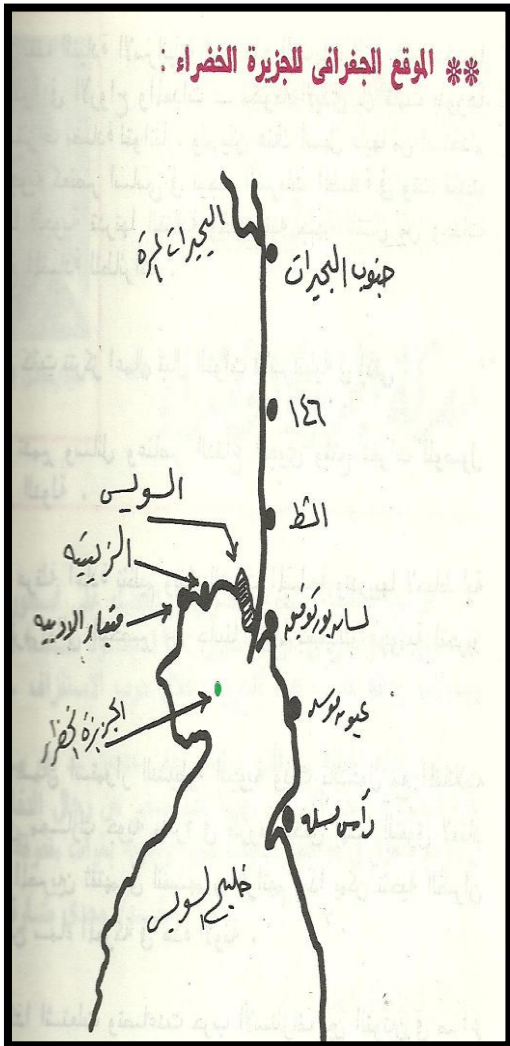 ** الموقع الجغرافى للجزيرة الخضراء :
البحيرات المرة
جنوب البحيرات
١٤٦
الشط
السويس
الزيتيه
لسان بور توفيق
ميناء الادبيه
الجزيرة الخضراء
عيون موسى
رأس مسله
خليج السويس